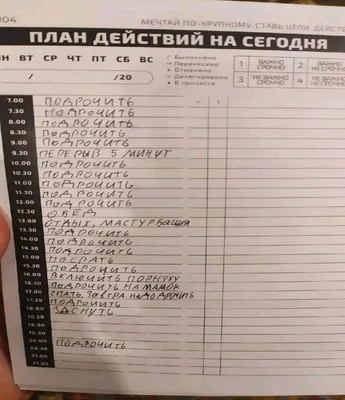 104 МЕЧТАЙ ПО-КРУПНОМУ. СТАВЬ ЦЕЛИ. ДЕЙСТ
ПЛАН ДЕЙСТВИЙ НА СЕГОДНЯ
ПН ВТ СР ЧТ ПТ СБ ВС
/ /20
✓ Выполнено
→ Перенесено
× Отменено
○ Делегировано
• В процессе
1 ВАЖНО СРОЧНО 2 ВАЖНО НЕ СРОЧНО
3 НЕ ВАЖНО СРОЧНО 4 НЕ ВАЖНО НЕ СРОЧНО
7.00 ПОДРОЧИТЬ ✓ 1
7.30 ПОДРОЧИТЬ
8.00 ПОДРОЧИТЬ
8.30 ПОДРОЧИТЬ
9.00 ПОДРОЧИТЬ
9.30 ПЕРЕРЫВ 5 МИНУТ
10.00 ПОДРОЧИТЬ
10.30 ПОДРОЧИТЬ
11.00 ПОДРОЧИТЬ
11.30 ПОДРОЧИТЬ
12.00 ПОДРОЧИТЬ
12.30 ОБЕД
13.00 ОТДЫХ, МАСТУРБАЦИЯ
13.30 ПОДРОЧИТЬ
14.00 ПОДРОЧИТЬ
14.30 ПОДРОЧИТЬ
15.00 ПОСРАТЬ
15.30 ПОДРОЧИТЬ
16.00 ВКЛЮЧИТЬ ПОРНУХУ
16.30 ПОДРОЧИТЬ НА МАМОК
17.00 СПАТЬ, ЗАВТРА НАДО ДРОЧИТЬ
17.30 ПОДРОЧИТЬ
18.00 ЗАСНУТЬ
20.30 ПОДРОЧИТЬ
21.00
21.30